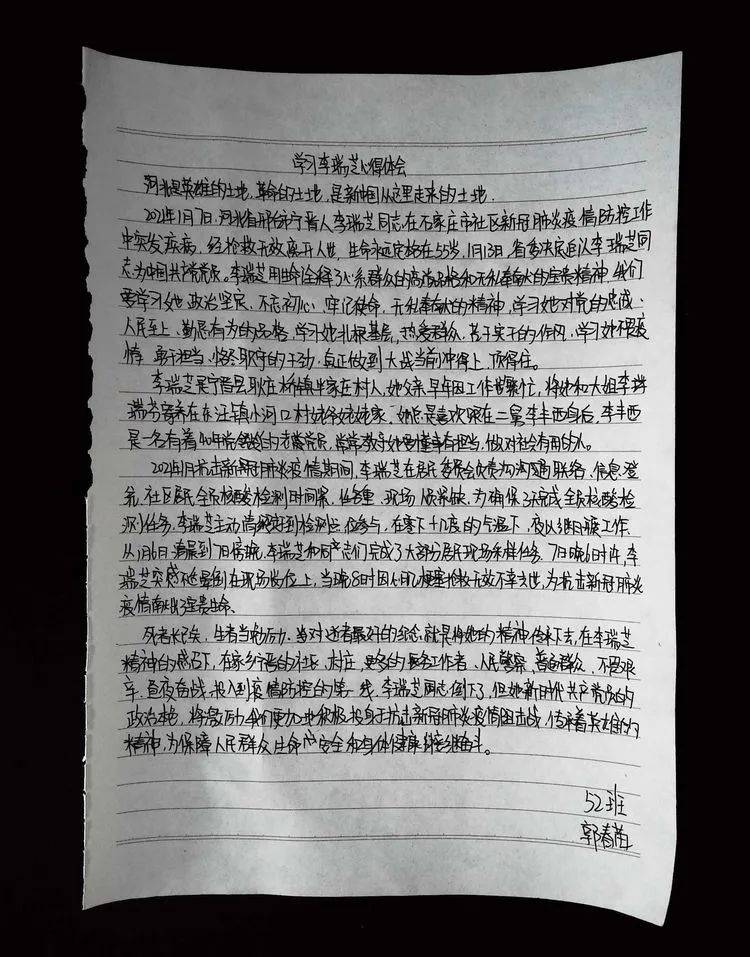 学习李瑞芝心得体会
河北是英雄的土地,革命的土地,是新中国从这里走来的土地.
2021年1月7日,河北省邢台宁晋人李瑞芝同志在石家庄市社区新冠肺炎疫情防控工作
中突发疾病,经抢救无效离开人世,生命永远定格在55岁,1月13日,省委决定追认李瑞芝同
志为中国共产党党员。李瑞芝用生命诠释了心系群众的高尚品格和无私奉献的宝贵精神,我们
要学习她政治坚定、不忘初心、牢记使命、无私奉献的精神,学习她对党的忠诚、
人民至上、勤恳有为的品格,学习她扎根基层,热爱群众、苦干实干的作风,学习她不畏疫
情、敢于担当、恪尽职守的干劲,真正做到大战当前冲得上、顶得住。
李瑞芝是宁晋县耿庄桥镇半家庄村人,她父亲早年因工作繁忙,将她和大姐李
瑞芬寄养在东汪镇小河口村姥爷姥姥家。她总是喜欢跟在二舅李丰西身后,李丰西
是一名有着40年党龄的老党员,常常教导她要懂事有担当,做对社会有用的人。
2021年1月抗击新冠肺炎疫情期间,李瑞芝在居民委员会负责沟通联络、信息登
记,社区居民全员核酸检测时间紧、任务重、现场人员紧缺,为确保3天完成全员核酸检
测任务,李瑞芝主动请缨到检测点位参与,在零下十几度的气温下,夜以继日工作,
从1月6日清晨到7日傍晚,李瑞芝和同志们完成了大部分居民现场采样任务。7日晚6时许,李
瑞芝突感不适晕倒在现场岗位上,当晚8时因心肌梗塞抢救无效不幸去世,为抗击新冠肺炎
疫情献出了宝贵生命、
死者长已矣,生者当勉力,当对逝者最好的纪念,就是将她的精神传承下去,在李瑞芝
精神的感召下,在家乡宁晋的社区、村庄,更多的医务工作者、人民警察、普通群众,不畏艰
辛、昼夜奋战,投入到疫情防控的第一线,李瑞芝同志倒下了,但她新时代共产党员的
政治本色,将激励我们更加地积极投身于抗击新冠肺炎疫情阻击战,传承着英雄的
精神,为保障人民群众生命安全和身体健康继续奋斗。
52班
郭春